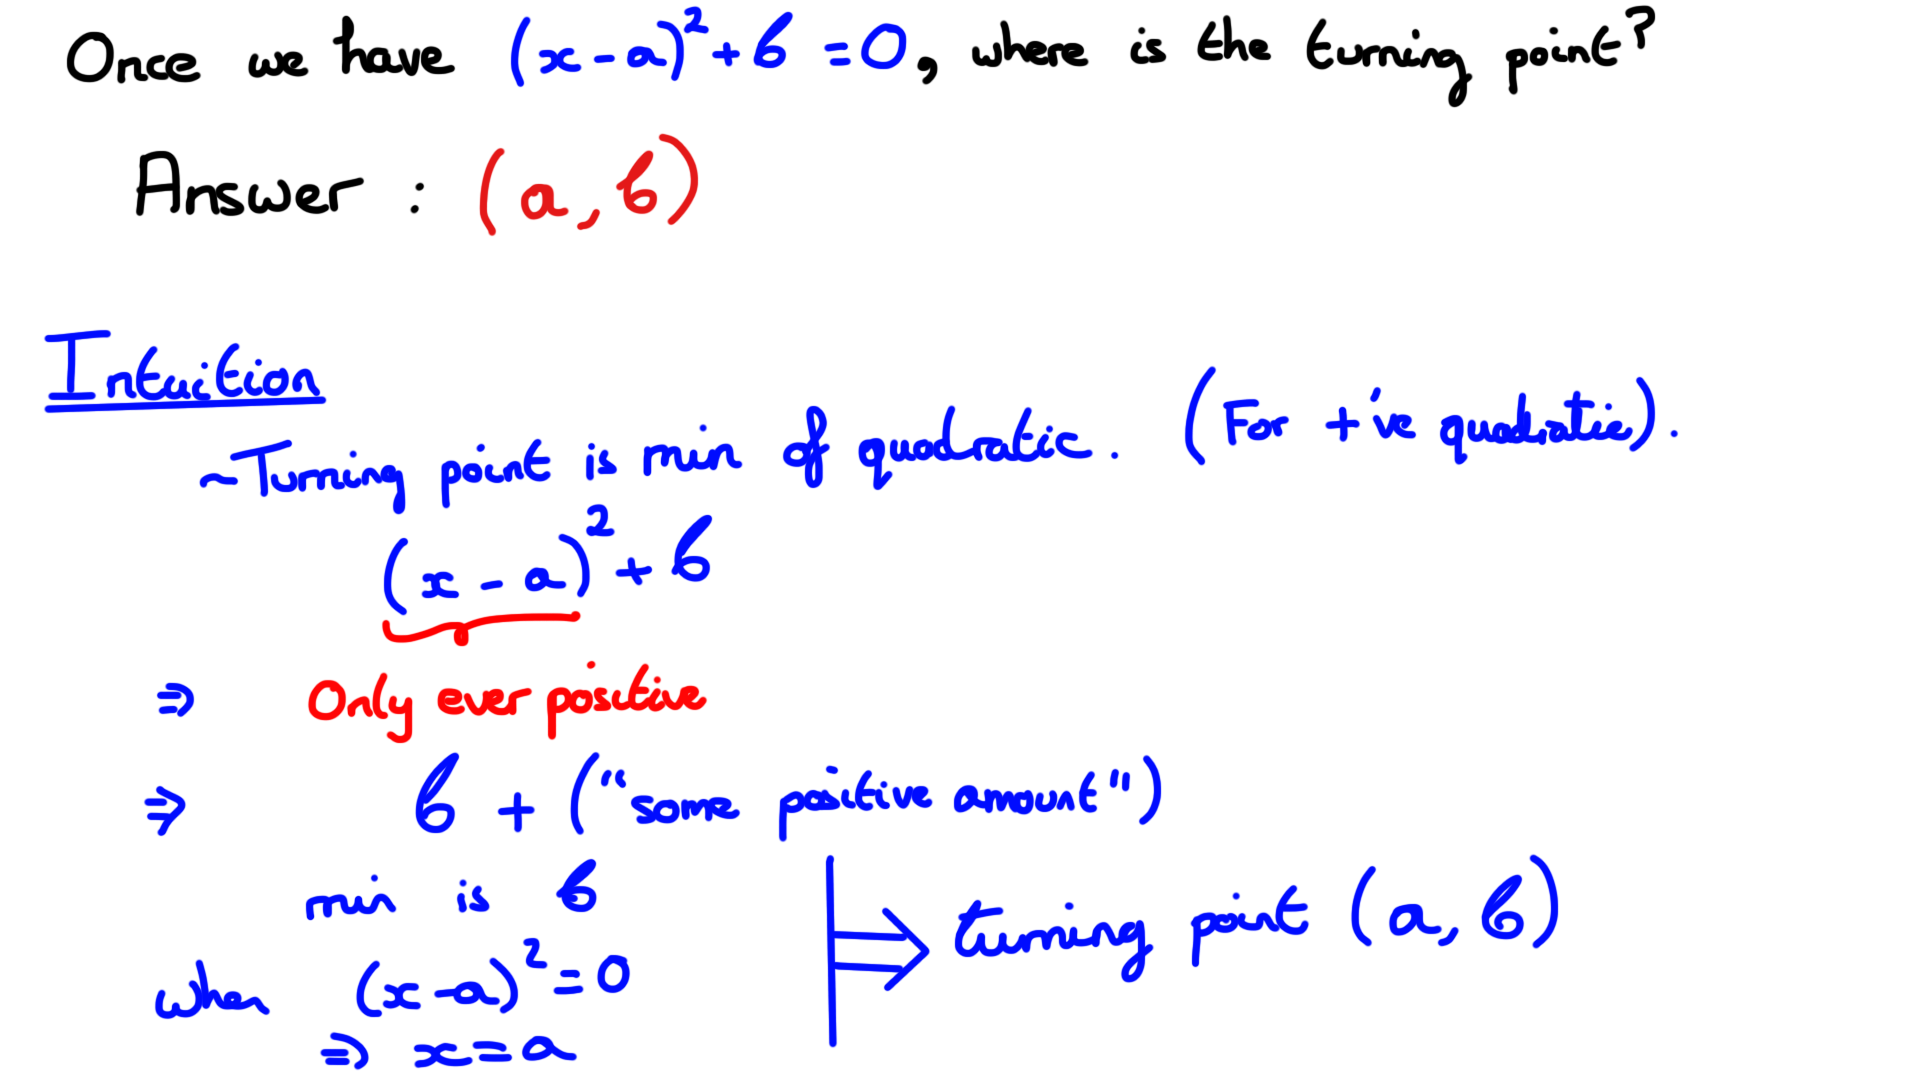 Once we have (x-a)²+b =0, where is the turning point?
Answer : (a,b)
Intuition
~Turning point is min of quadratic. (For +'ve quadratic).
(x-a)²+b
⇒ Only ever positive
⇒ b + ("some positive amount")
min is b
when (x-a)²=0
⇒ x=a
⇒ turning point (a,b)